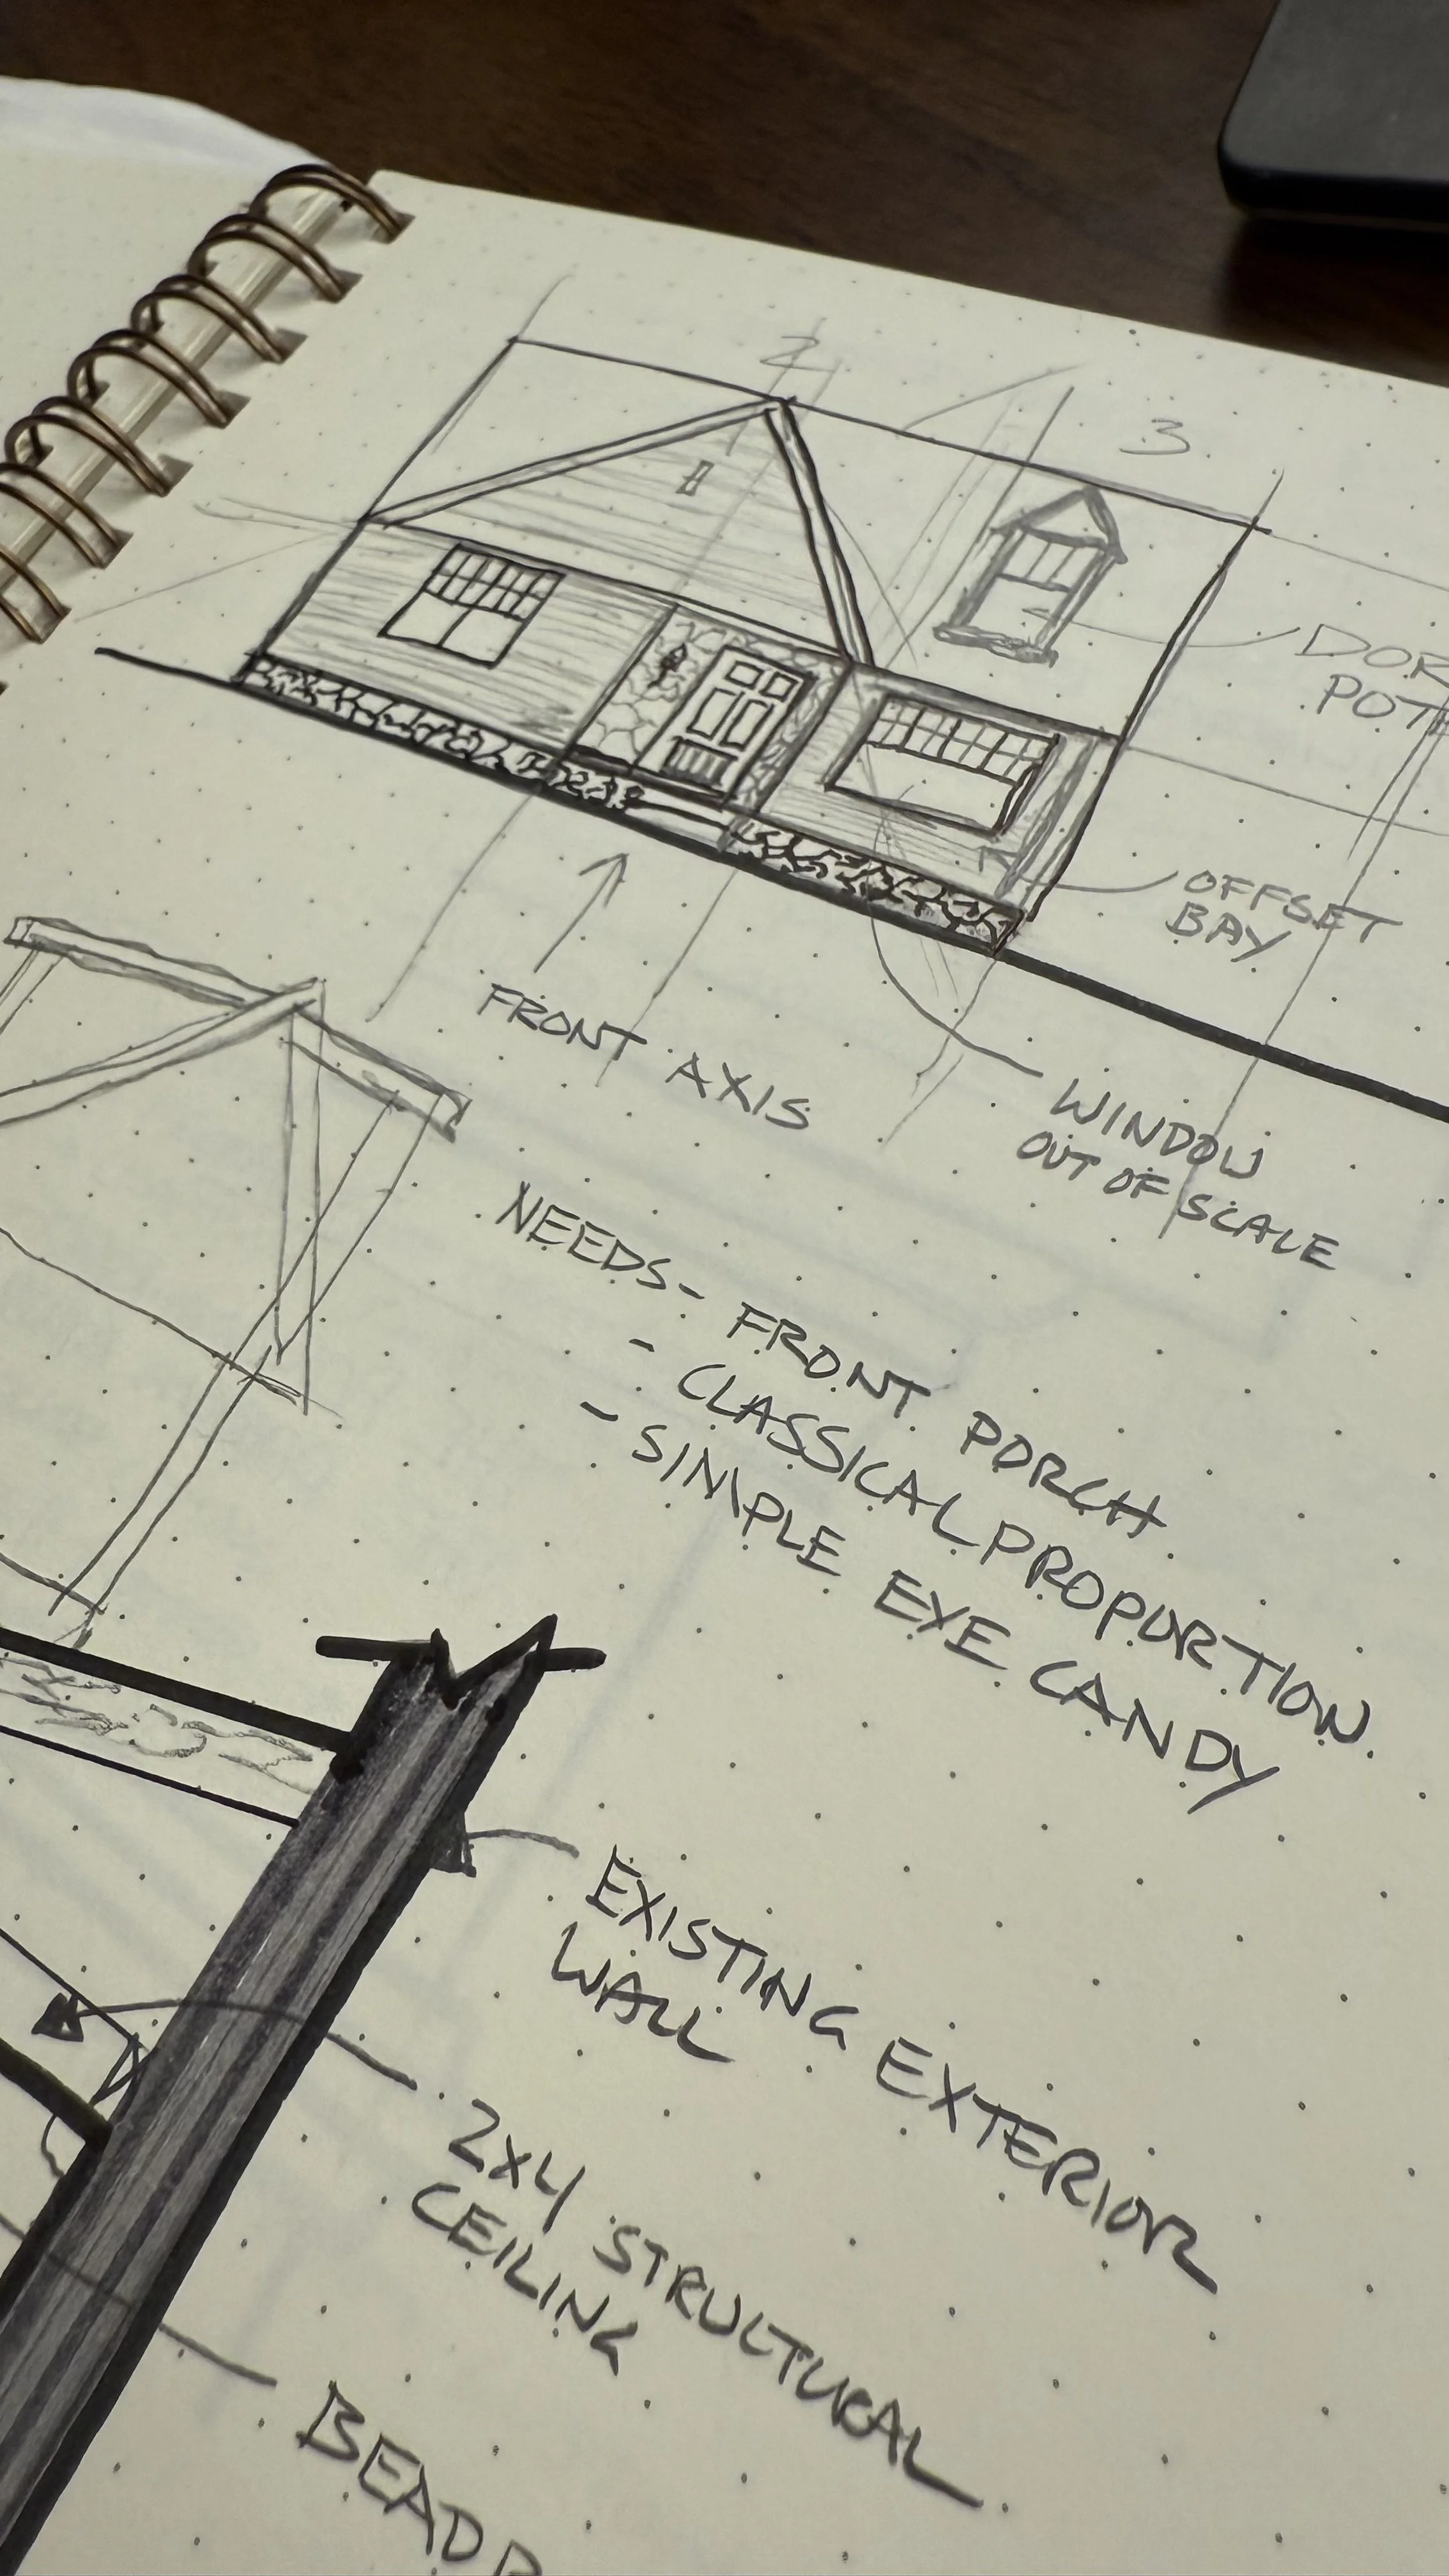 2
3
OFFSET
BAY
FRONT AXIS
WINDOW
OUT OF SCALE
NEEDS- FRONT PORCH
- CLASSICAL PROPORTION
- SIMPLE EYE CANDY
EXISTING EXTERIOR
WALL
2x4 STRUCTURAL
CEILING